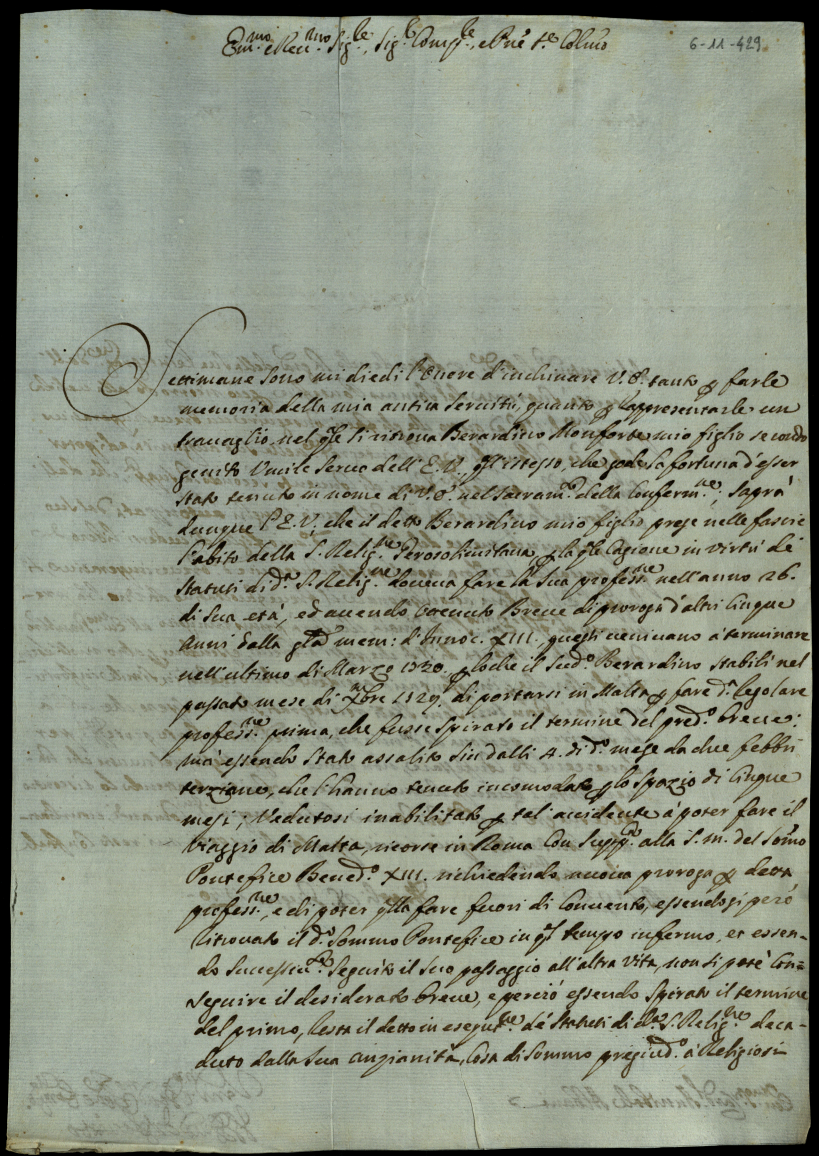 Em.mo e Rev.mo Sig.re, Sig.r Comp.re, e Pne S.re Colmo
6-11-429
Settimane sono mi diedi l'onore d'inchinare V.E. tanto p farle
memoria della mia antica servitù, quanto p rappresentarle un
travaglio, nel qle si ritrova Berardino Monforte mio figlio secondo
genito umile servo dell'E.V., qll'istesso, che gode la fortuna d'esser
stato tenuto in nome di V.E. nel sacram.to della Conferm.ne; saprà
dunque l'E.V., che il detto Berardino mio figlio prese nelle fascie
l'abito della S. Relig.ne Gerosolimitana, p la qle cagione in virtù de
Statuti di d.a S. Relig.ne doveva fare la sua profess.ne nell'anno 26.
di sua età, ed avendo ottenuto Breve di proroga d'altri cinque
anni dalla gla mem: d'Innoc. XIII. questi venivano a terminare
nell'ultimo di Marzo 1730. p loche il sud.o Berardino stabilì nel
passato mese di Xbre 1729. di portarsi in Malta p fare d.a regolare
profess.ne prima, che fusse spirato il termine del pred.o breve;
mà essendo stato assalito sin dalli 4. di d.o mese da due febbri
terziane, che l'hanno tenuto incomodato p lo spazio di cinque
mesi; vedutosi inabilitato p tal accidente à poter fare il
viaggio di Malta, ricorse in Roma con supp.ca alla S.M. del Somo
Pontefice Bened.o XIII. richiedendo nuova proroga p detta
profess.ne, e di poter qlla fare fuori di Convento, essendosi però
ritrovato il d.o Sommo Pontefice in ql tempo infermo, et essen-
do successiv.te seguito il suo passaggio all'altra vita, non si potè con=
seguire il desiderato breve, e perciò essendo spirato il termine
del primo, resta il detto in esecut.ne de Statuti di d.a S. Relig.ne deca-
duto dalla sua anzianità, cosa di sommo pregiud.o a Religiosi